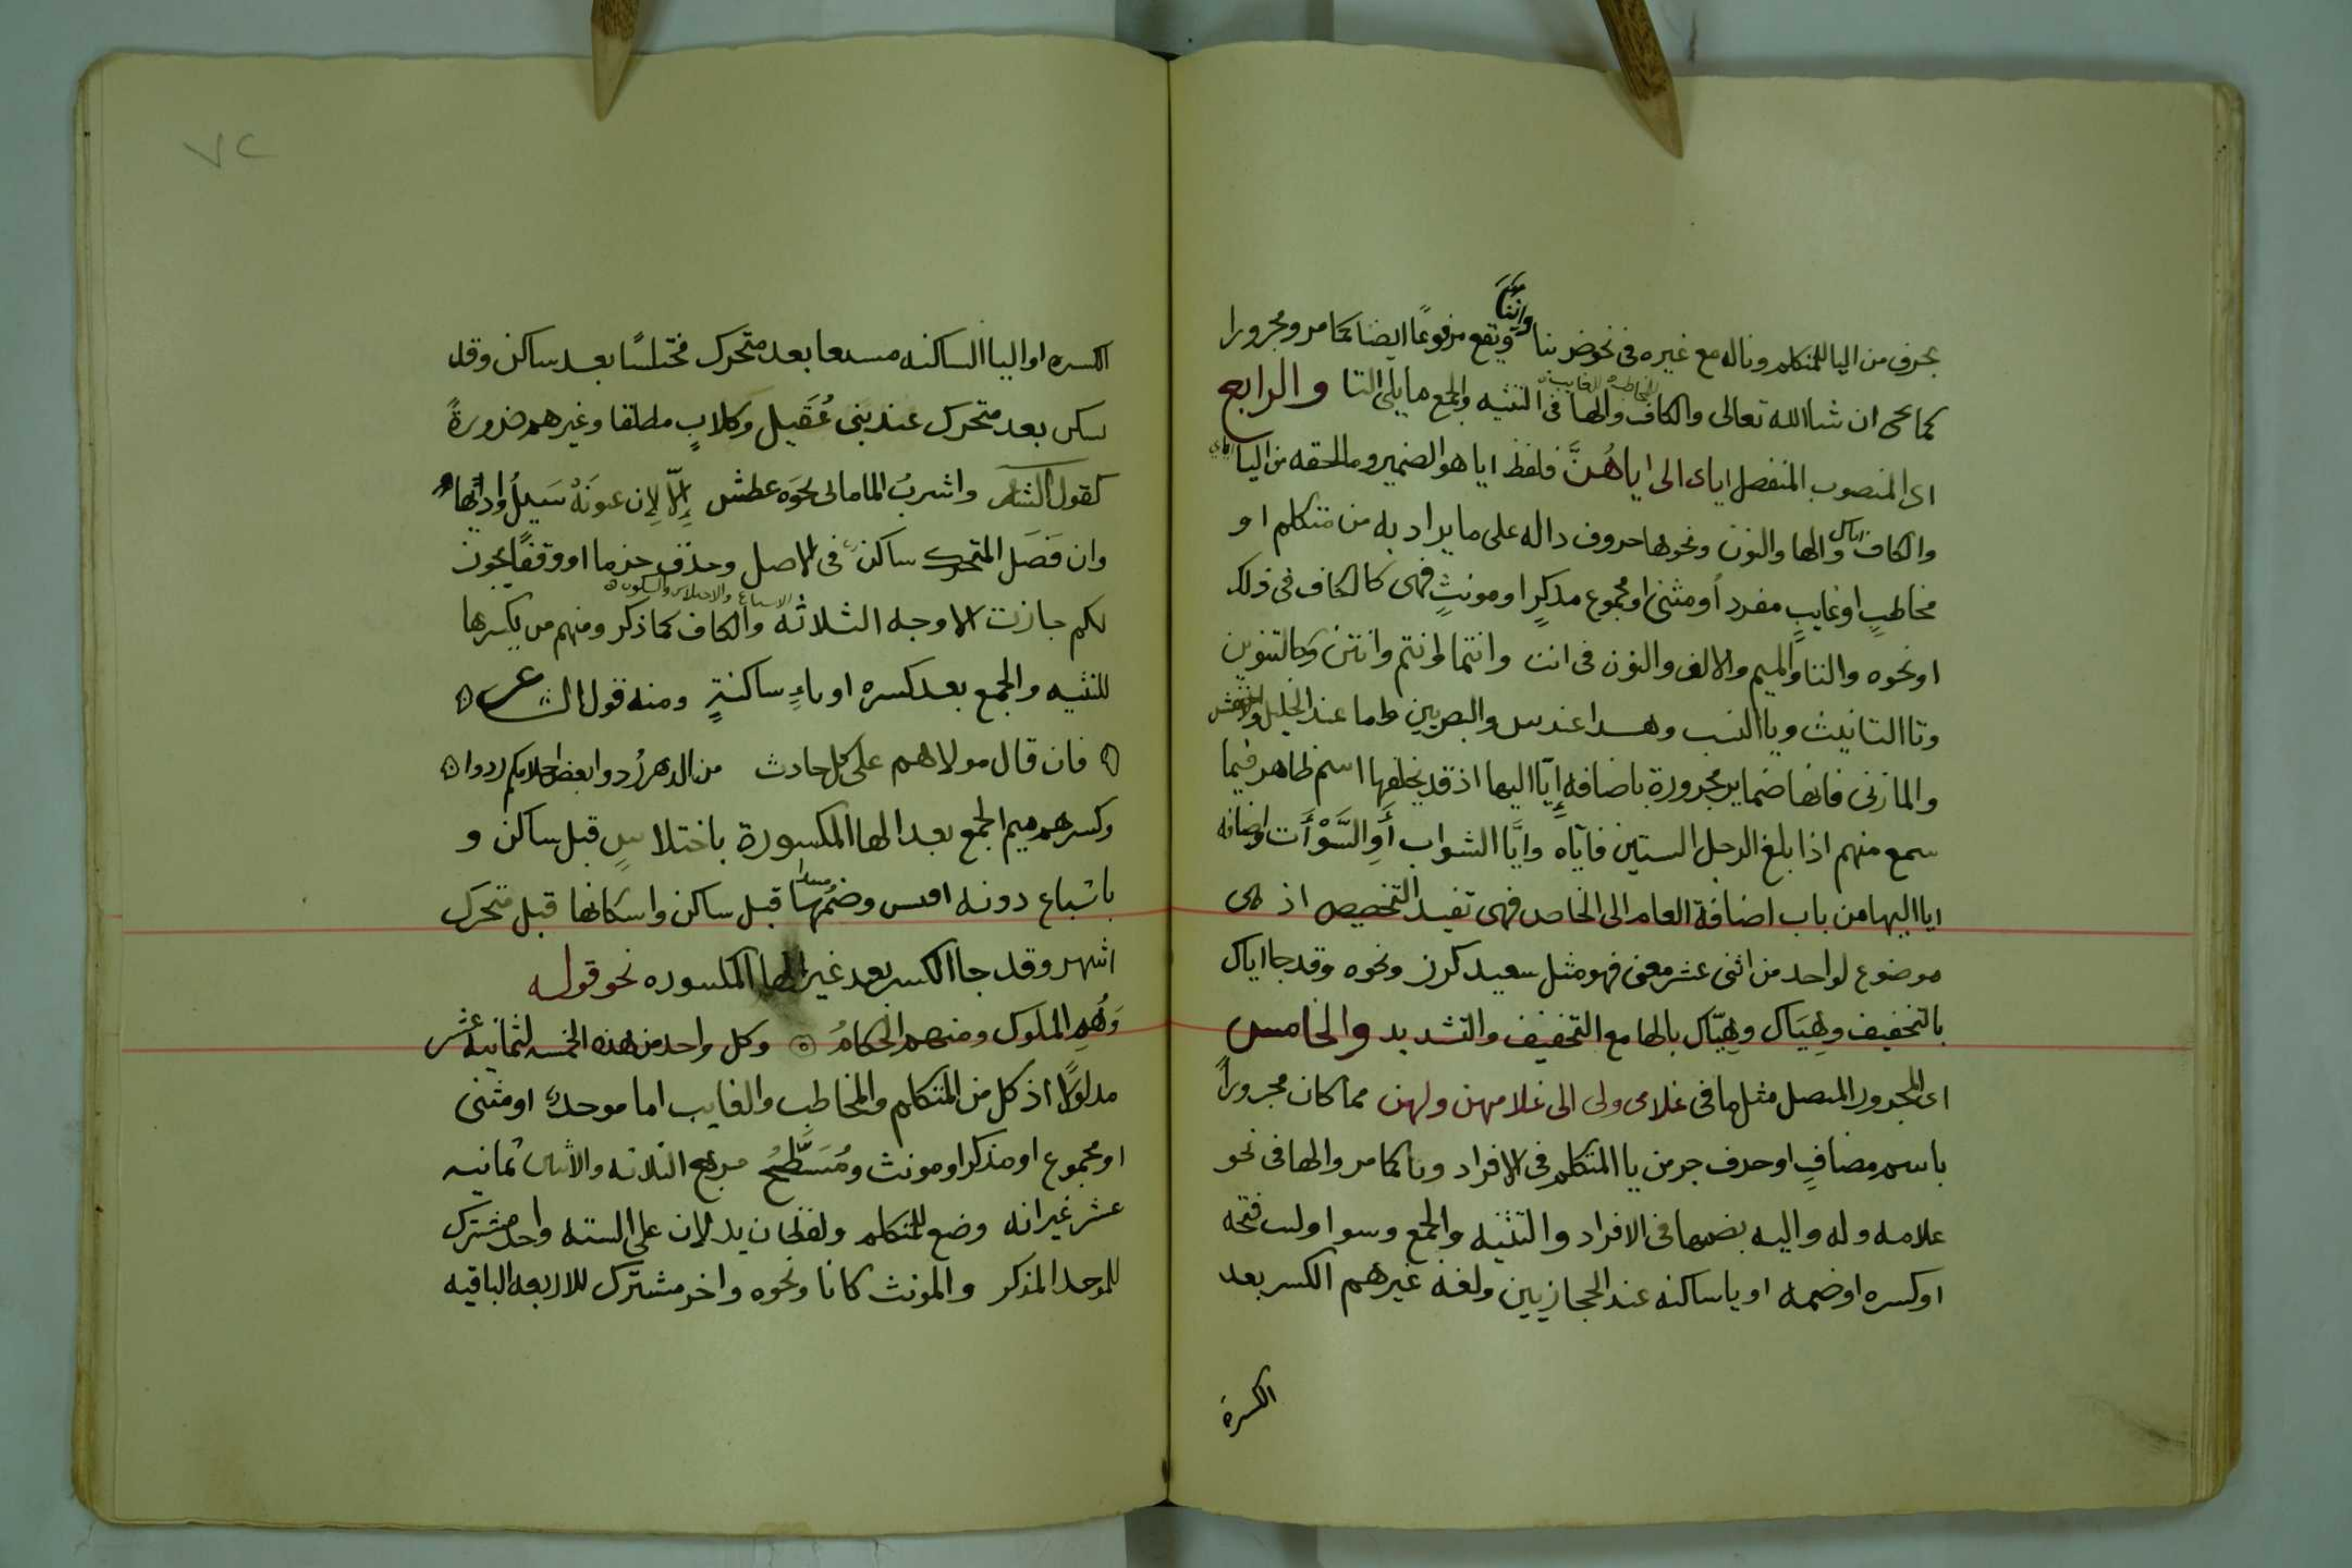 بحرف من اليا للمتكلم وناله مع غيره فى نحو ضربنا ويقع مرفوعًا ايضا كما مر ومجرورا
كما يجى ان شا الله تعالى والكاف والها فى التثنيه والجمع ما يلى التا والرابع
اى المنصوب المنفصل اياى الى اياهُنَّ فلفظ ايا هو الضمير وما لحقه من اليا
والكاف والها والنون ونحوها حروف داله على ما يراد به من متكلم او
مخاطبٍ او غايبٍ مفرد أو مثنى او مجموع مذكرٍ او مونثٍ فهى كالكاف فى ذلك
او نحوه والتا والميم والالف والنون فى انت وانتما وانتم وانتن وكالتنوين
وتا التانيث ويا النسب وهذا عند س والبصريين واما عند الخليل والاخفش
والمازنى فانها ضماير مجرورة باضافه إيّا اليها اذ قد يخلفها اسم ظاهر فيما
سمع منهم اذا بلغ الرجل الستين فاياه وايَّا الشواب أَوِ السَّوْأَت واضافه
ايا اليها من باب اضافة العام الى الخاص فهى تفيد التخصيص اذ هى
موضوع لواحد من اثنى عشر معنى فهو مثل سعيد كرز ونحوه وقد جا اياك
بالتخفيف وهِيَاك وهِيّاك بالها مع التخفيف والتشديد والخامس
اى المجرور المتصل مثل ما فى غلامى ولى الى غلامهن ولهن مما كان مجروراً
باسم مضافٍ او حرف جر من يا المتكلم فى الافراد ونا كما مر والها فى نحو
غلامه وله واليه بضمها فى الافراد والتثنيه والجمع وسوا وليت فتحه
او كسره او ضمه او يا ساكنه عند الحجازيين ولغة غيرهم الكسر بعد
الكسرة
٧٢
الكسره او اليا الساكنه مشبعا بعد متحرك مختلسًا بعد ساكن وقد
يسكن بعد متحرك عند بنى عُقَيل وكلابٍ مطلقا وغيرهم ضرورةً
كقول الشاعر واشربُ الما مالى نحوَه عطش إلّا لِان عيونَهْ سَيلُ واديها
وان فَصَل المتحرك ساكن فى الاصل وحذف جزما او وقفًا
جازت الاوجه الثلاثه والكاف كما ذكر ومنهم من يكسرها
للتثنيه والجمع بعد كسره او ياءٍ ساكنةٍ ومنه قول الشاعر
فان قال مولاهم على كل حادث من الدهر رُدوا بعض احلامكم ردوا
وكسرهم ميم الجمع بعد الها المكسورة باختلاسٍ قبل ساكن و
باشباع دونه اقيس وضمها قبل ساكن واسكانها قبل متحرك
اشهر وقد جا الكسر بعد غير الها المكسوره نحو قوله
وَهُمِ الملوك ومنهم الحكامُ وكل واحد من هذه الخمسه لثمانية عشر
مدلولًا اذ كل من المتكلم والمخاطب والغايب اما موحد او مثنى
او مجموع او مذكر او مونث ومُسَطَّحُ مربع الثلاثه والاثنين ثمانيه
عشر غير انه وضع للمتكلم ولفظان يدلان على السته واحد مشترك
للموحد المذكر والمونث كانا ونحوه واخر مشترك للاربعه الباقيه